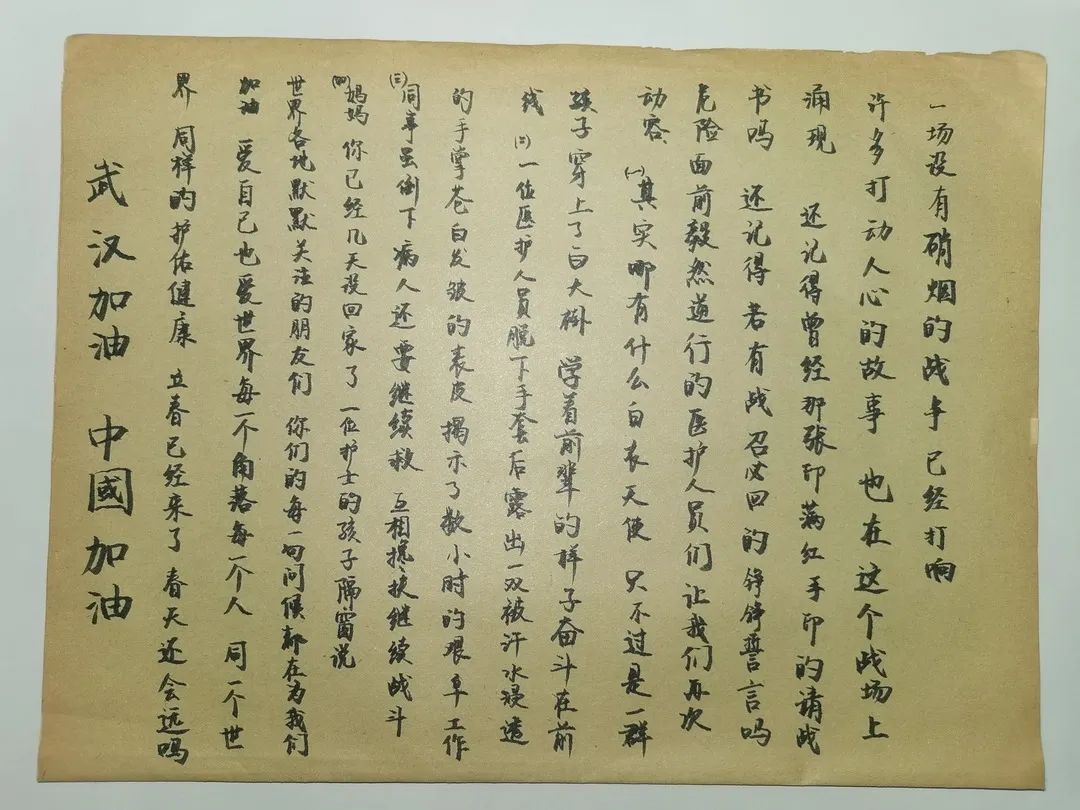 一场没有硝烟的战争已经打响
许多打动人心的故事 也在这个战场上
涌现 还记得曾经那张印满红手印的请战
书吗 还记得若有战召必回的铮铮誓言吗
危险面前毅然逆行的医护人员们让我们再次
动容 (一)其实哪有什么白衣天使 只不过是一群
孩子穿上了白大褂 学着前辈的样子奋斗在前
线 (二)一位医护人员脱下手套后露出一双被汗水浸透
的手掌苍白发皱的表皮揭示了数小时的艰辛工作
(三)同事虽倒下 病人还要继续救 互相搀扶继续战斗
(四)妈妈 你已经几天没回家了 一位护士的孩子隔窗说
世界各地默默关注的朋友们 你们的每一句问候都在为我们
加油 爱自己也爱世界每一个角落每一个人 同一个世
界 同样的护佑健康 立春已经来了 春天还会远吗
武汉加油 中國加油